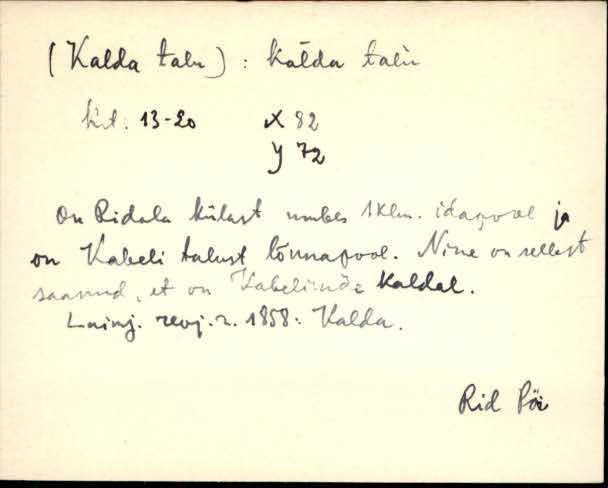 (Kalda talu) : kàlda talù
krt. 13-20 X 82
Y 72
On Ridala külast umbes 1 klm. idapool ja
on Kabeli talust lõunapool. Nime on sellest
saanud, et on Kabelimäe kaldal.
revj. r. 1858: Kalda.
Rid